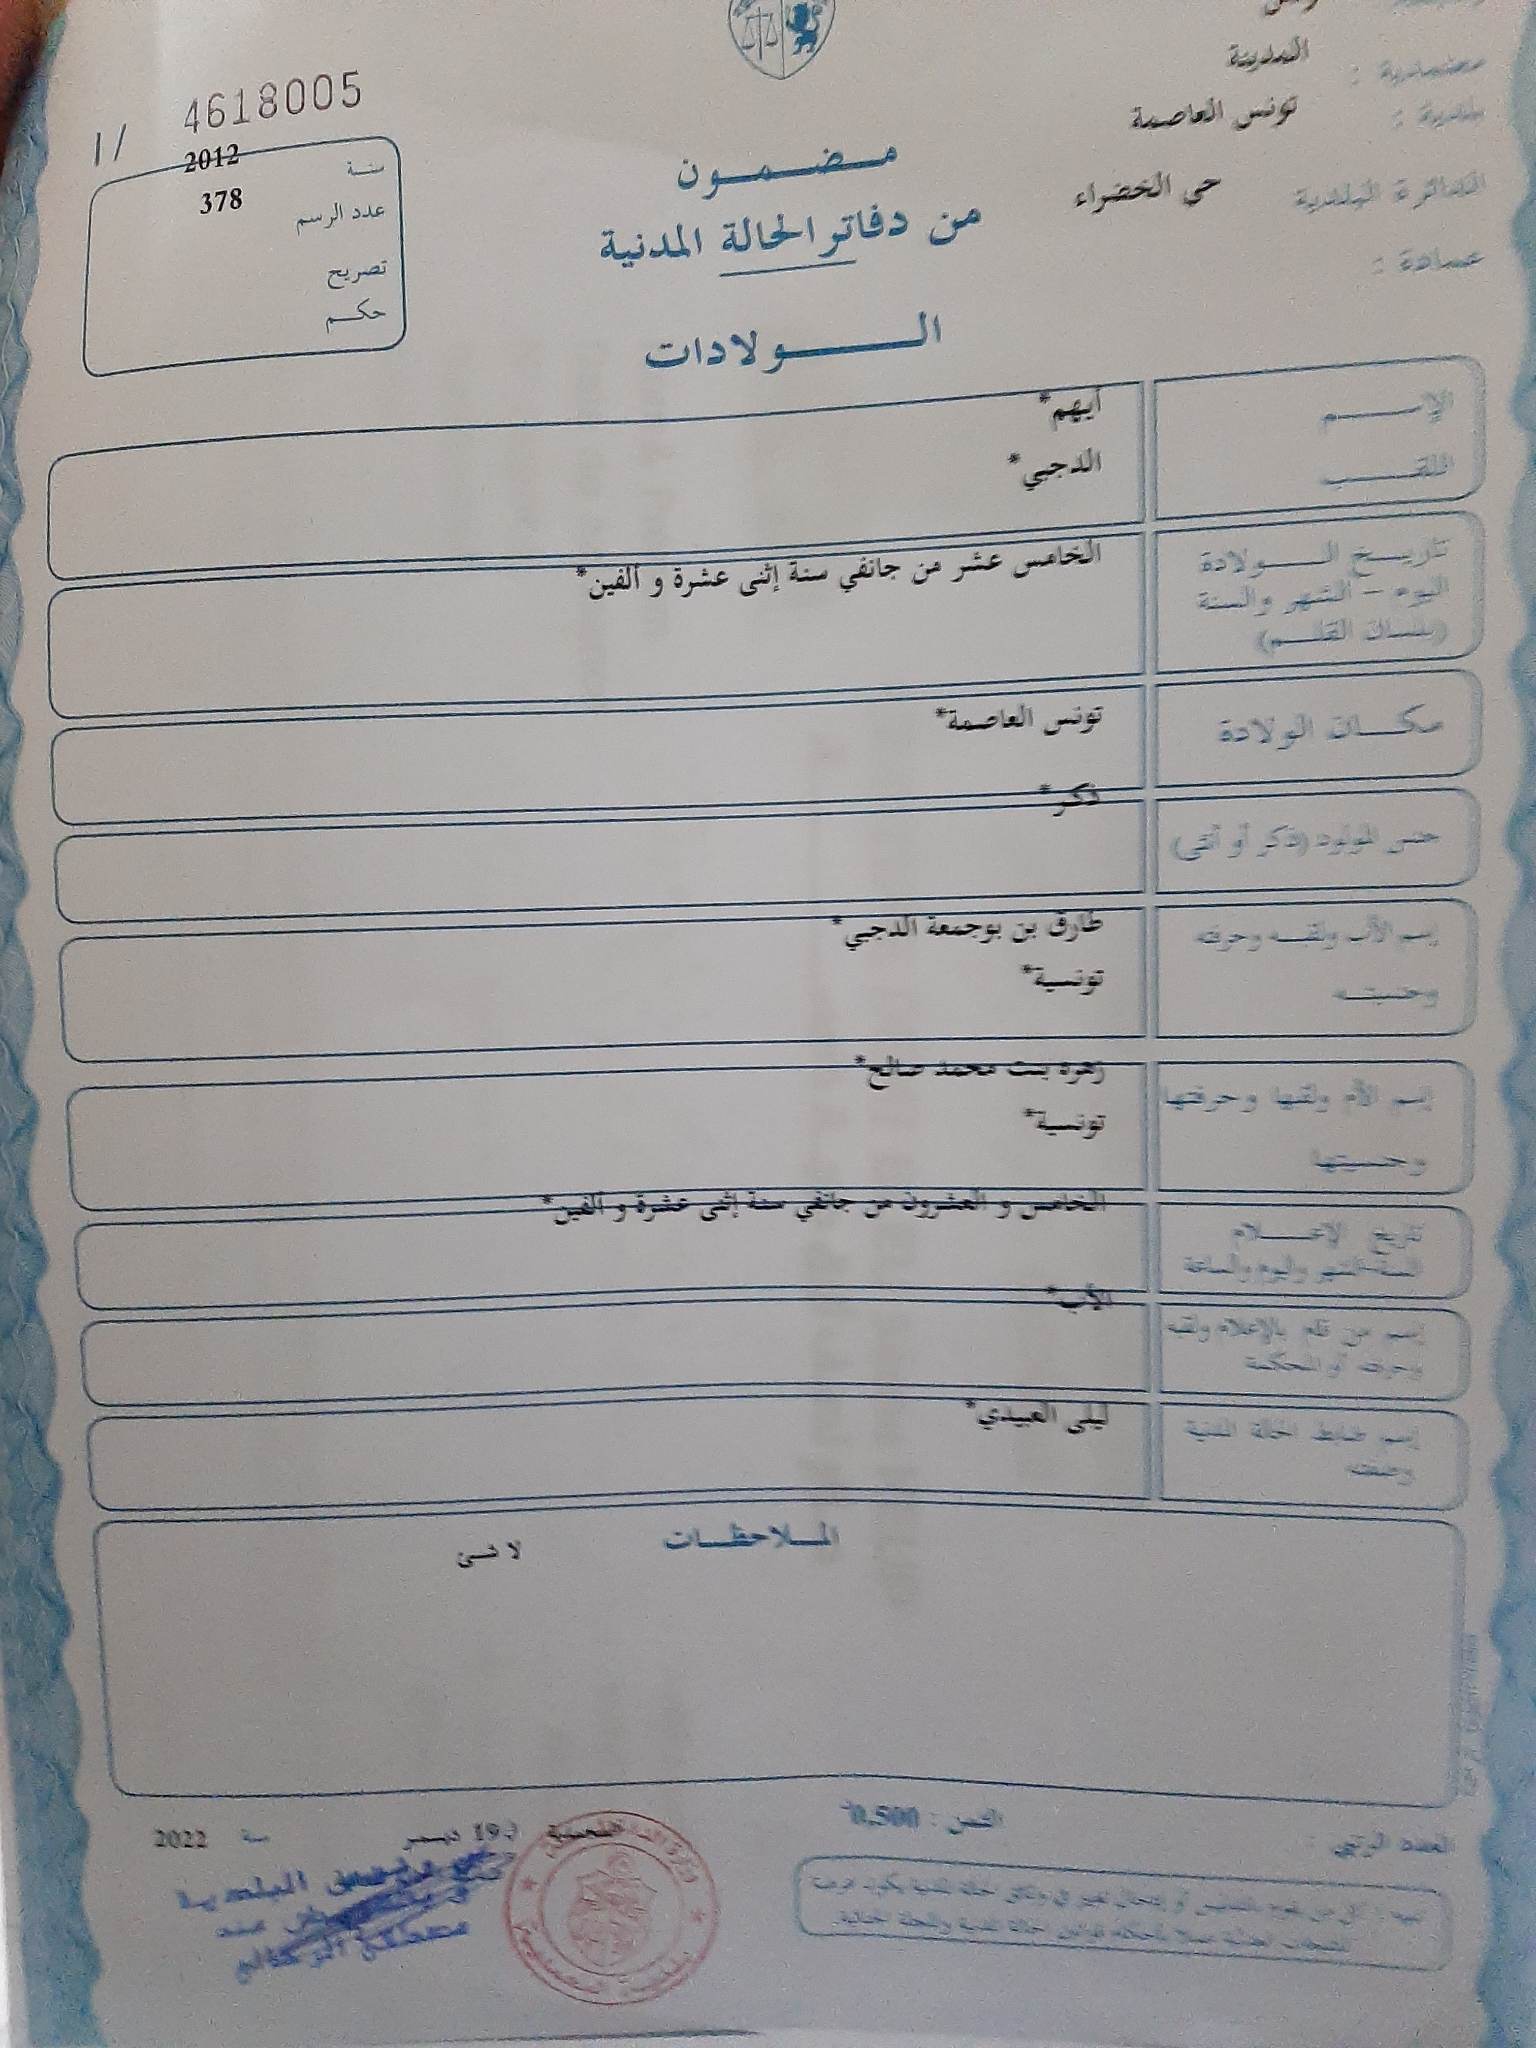 المدينة
معتمدية :
تونس العاصمة
بلدية :
حي الخضراء
الدائرة البلدية
عمادة :
4618005
1/
سنة 2012
عدد الرسم 378
تصريح
حكم
مضمون
من دفاتر الحالة المدنية
الولادات
الإسم أيهم*
اللقب الدجبي*
تاريخ الولادة الخامس عشر من جانفي سنة إثنى عشرة و ألفين*
اليوم - الشهر والسنة
(بلسان القلم)
مكان الولادة تونس العاصمة*
جنس المولود (ذكر أو أنثى) ذكر*
إسم الأب ولقبه وحرفته طارق بن بوجمعة الدجبي*
وجنسيته تونسية*
إسم الأم ولقبها وحرفتها زهرة بنت محمد صالح*
وجنسيتها تونسية*
تاريخ الإعلام الخامس و العشرون من جانفي سنة إثنى عشرة و ألفين*
السنة-الشهر واليوم والساعة
إسم من قام بالإعلام ولقبه الأب*
وحرفته أو المحكمة
إسم ضابط الحالة المدنية ليلى العبيدي*
وصفته
الملاحظات
لا شئ
العدد الرتبي :
الثمن : 0.500
19 ديسمبر سنة 2022